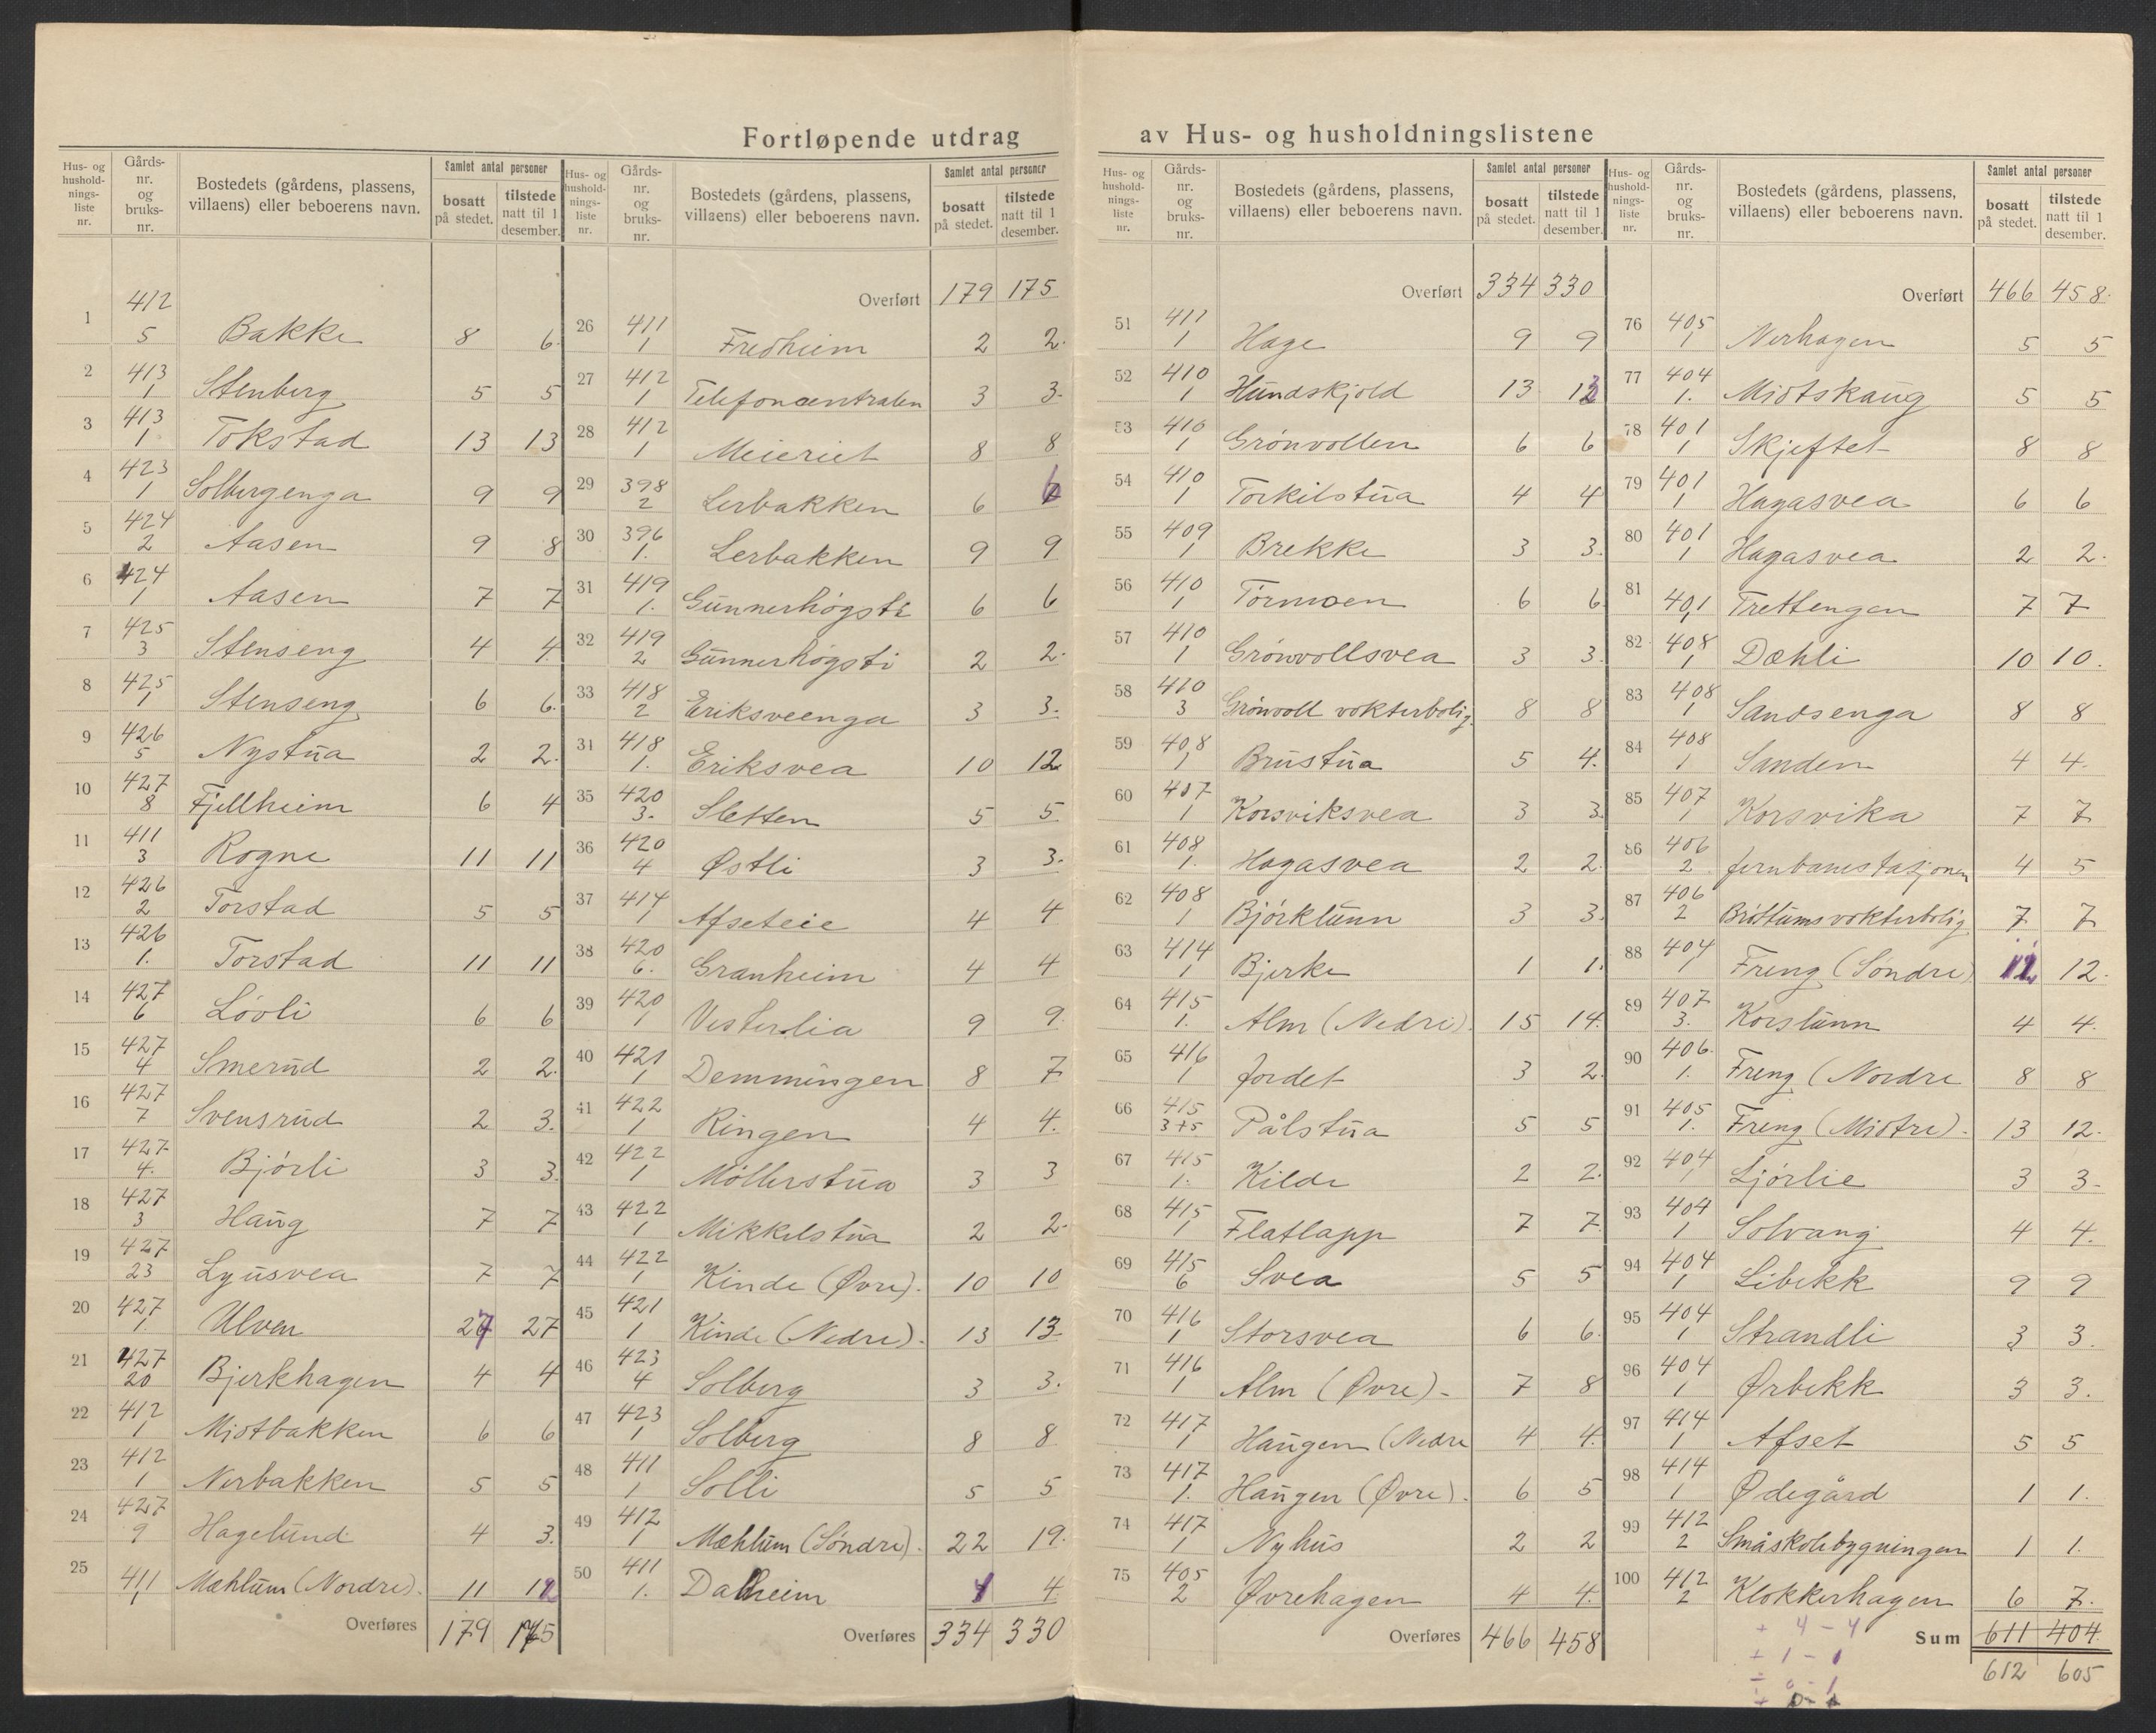 Fortløpende utdrag av Hus- og husholdningslistene
Hus- og husholdningsliste nr. | Gårds-nr. og bruks-nr. | Bostedets (gårdens, plassens, villaens) eller beboerens navn. | Samlet antal personer | bosatt på stedet. | tilstede natt til 1 desember.
1 412 5 Bakke 8 6
2 413 1 Stenberg 5 5
3 413 1 Tokstad 13 13
4 423 1 Solbergenga 9 9
5 424 2 Aasen 9 8
6 424 1 Aasen 7 7
7 425 3 Stenseng 4 4
8 425 1 Stenseng 6 6
9 426 5 Nystua 2 2
10 427 8 Fjellheim 6 4
11 411 3 Rogne 11 11
12 426 2 Torstad 5 5
13 426 1. Torstad 11 11
14 427 6 Lövli 6 6
15 427 4 Smerud 2 2
16 427 7 Svensrud 2 3
17 427 4. Björli 3 3
18 427 3 Haug 7 7
19 427 23 Lyusvea 7 7
20 427 1. Ulven 27 27
21 427 20 Bjerkhagen 4 4
22 412 1 Midtbakken 6 6
23 412 1 Nerbakken 5 5
24 427 9 Hagelund 4 3
25 411 1 Mæhlum (Nordre). 11 12
Overføres 179 175
Hus- og husholdningsliste nr. | Gårds-nr. og bruks-nr. | Bostedets (gårdens, plassens, villaens) eller beboerens navn. | Samlet antal personer | bosatt på stedet. | tilstede natt til 1 desember.
Overført 179 175
26 411 1 Fredheim 2 2
27 412 1 Telefoncentralen 3 3
28 412 1 Meieriet 8 8
29 398 2 Lerbakken 6 6
30 396 1. Lerbakken 9 9
31 419 1. Gunnerhögsti 6 6
32 419 2 Gunnerhögsti 2 2
33 418 2 Eriksveenga 3 3
34 418 1. Eriksvea 10 12
35 420 3. Sletten 5 5
36 420 4 Østli 3 3
37 414 1 Afseteie 4 4
38 420 6. Granheim 4 4
39 420 1 Vesterlia 9 9
40 421 1 Demmingen 8 7
41 422 1 Ringen 4 4
42 422 1 Möllerstua 3 3
43 422 1 Mikkelstua 2 2
44 422 1 Kinde (Øvre). 10 10
45 421 1 Kinde (Nedre). 13 13
46 423 4 Solberg 3 3
47 423 1 Solberg 8 8
48 411 1 Solli 5 5
49 412 1 Mæhlum (Söndre). 22 19
50 411 1. Dalheim 4 4
Overføres 334 330
Hus- og husholdningsliste nr. | Gårds-nr. og bruks-nr. | Bostedets (gårdens, plassens, villaens) eller beboerens navn. | Samlet antal personer | bosatt på stedet. | tilstede natt til 1 desember.
Overført 334 330
51 411 1 Hage 9 9
52 410 1 Hundskjold 13 13
53 410 1 Grönvollen 6 6
54 410 1 Torkilstua 4 4
55 409 1 Brekke 3 3
56 410 1 Törmoen 6 6
57 410 1 Grönvollsvea 3 3
58 410 3 Grönvoll vokterbolig 8 8
59 408 1 Brustua 5 4
60 407 1 Korsviksvea 3 3
61 408 1. Hagasvea 2 2
62 408 1 Björklunn 3 3
63 414 1 Bjerke 1 1
64 415 1. Alm (Nedre) 15 14
65 416 1 Jordet 3 2
66 415 3+5 Pålstua 5 5
67 415 1. Kilde 2 2
68 415 1 Flatlapp 7 7
69 415 6 Svea 5 5
70 416 1 Storsvea 6 6
71 416 1 Alm (Øvre) 7 8
72 417 1 Haugen (Nedre 4 4
73 417 1. Haugen (Øvre). 6 5
74 417 1 Nyhus 2 2
75 405 2 Øvrehagen 4 4
Overføres 466 458
Hus- og husholdningsliste nr. | Gårds-nr. og bruks-nr. | Bostedets (gårdens, plassens, villaens) eller beboerens navn. | Samlet antal personer | bosatt på stedet. | tilstede natt til 1 desember.
Overført 466 458
76 405 1 Nerhagen 5 5
77 404 1. Midtskaug 5 5
78 401 1 Skjeftet 8 8
79 401 1 Hagasvea 6 6
80 401 1 Hagasvea 2 2
81 401 1 Trettengen 7 7
82 408 1 Dæhli 10 10
83 408 1 Sandsenga 8 8
84 408 1 Sanden 4 4
85 407 1 Korsvika 7 7
86 406 2 Jernbanestasjonen 4 5
87 406 2 Bröttums vokterbolig 7 7
88 404 1 Freng (Söndre) 12 12
89 407 3. Korslunn 4 4
90 406 1. Freng (Nordre 8 8
91 405 1. Freng (Midtre). 13 12
92 404 1 Ljörlie 3 3
93 404 1 Solvang 4 4
94 404 1 Libekk 9 9
95 404 1 Strandli 3 3
96 404 1 Ørbekk 3 3
97 414 1 Afset 5 5
98 414 1 Ødegård 1 1
99 412 2 Småskolebygningen 1 1
100 412 2 Klokkerhagen 6 7
+ 4 - 4
Sum 611 404
+ 1 - 1
612 605